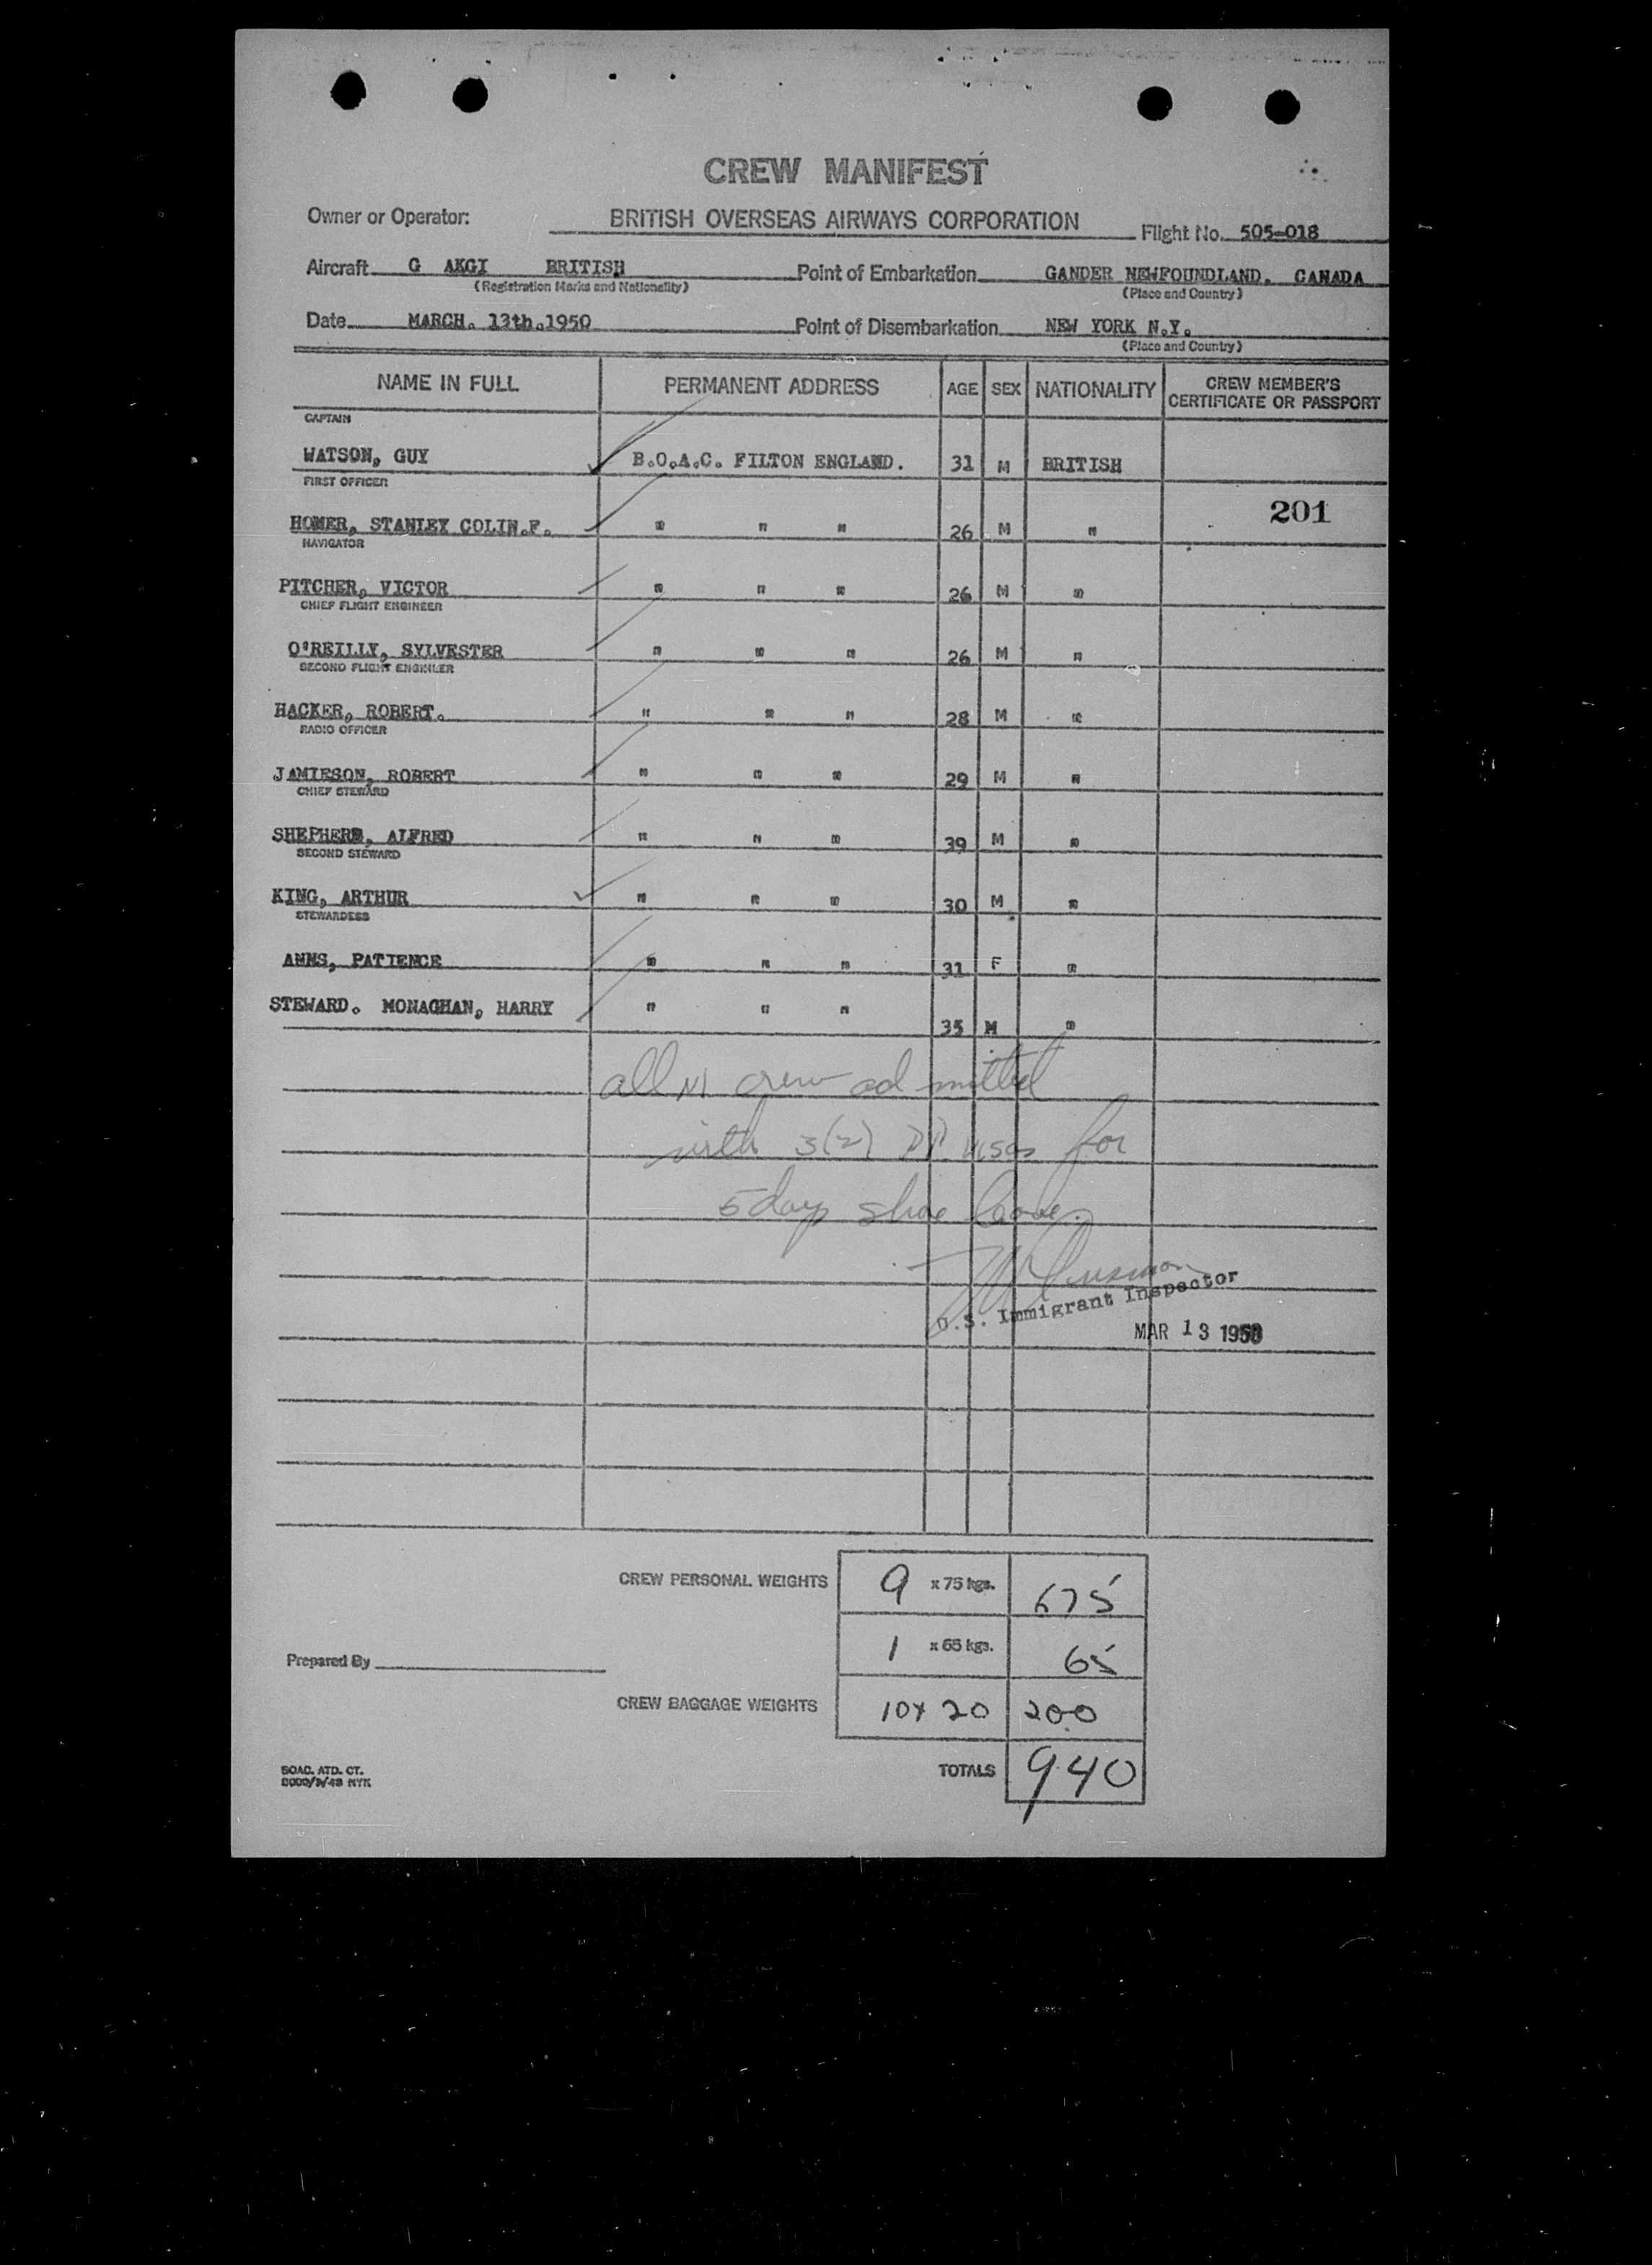 CREW MANIFEST
Owner or Operator: BRITISH OVERSEAS AIRWAYS CORPORATION Flight No. 505-018
Aircraft G AKGI BRITISH Point of Embarkation GANDER NEWFOUNDLAND. CANADA
(Registration Marks and Nationality) (Place and Country)
Date MARCH. 13th.1950 Point of Disembarkation NEW YORK N.Y.
(Place and Country)
NAME IN FULL PERMANENT ADDRESS AGE SEX NATIONALITY CREW MEMBER'S
CERTIFICATE OR PASSPORT
CAPTAIN
WATSON, GUY B.O.A.C. FILTON ENGLAND. 31 M BRITISH
FIRST OFFICER
201
HOMER, STANLEY COLIN.F. " " " 26 M "
NAVIGATOR
PITCHER, VICTOR " " " 26 M "
CHIEF FLIGHT ENGINEER
O'REILLY, SYLVESTER " " " 26 M "
SECOND FLIGHT ENGINEER
HACKER, ROBERT. " " " 28 M "
RADIO OFFICER
JAMIESON, ROBERT " " " 29 M "
CHIEF STEWARD
SHEPHERD, ALFRED " " " 39 M "
SECOND STEWARD
KING, ARTHUR " " " 30 M "
STEWARDESS
ANNS, PATIENCE " " " 31 F "
STEWARD. MONAGHAN, HARRY " " " 35 M "
all crew admitted
with 3(2) visas for
5 day shore leave.
U.S. Immigrant Inspector
MAR 13 1950
CREW PERSONAL WEIGHTS 9 x 75 kgs. 675
1 x 65 kgs. 65
Prepared By
CREW BAGGAGE WEIGHTS 10 x 20 200
TOTALS 940
BOAC. ATD. CT.